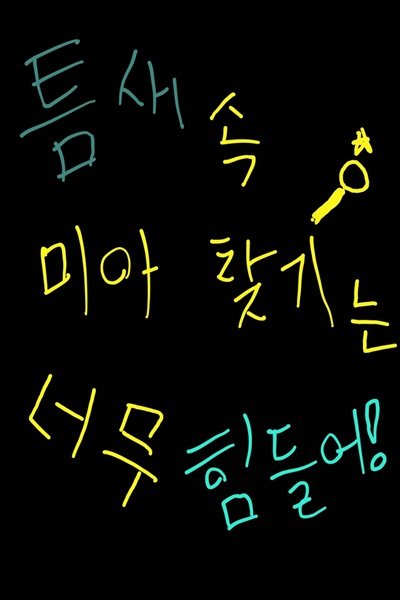 틈새속
미아 찾기는
너무 힘들어!